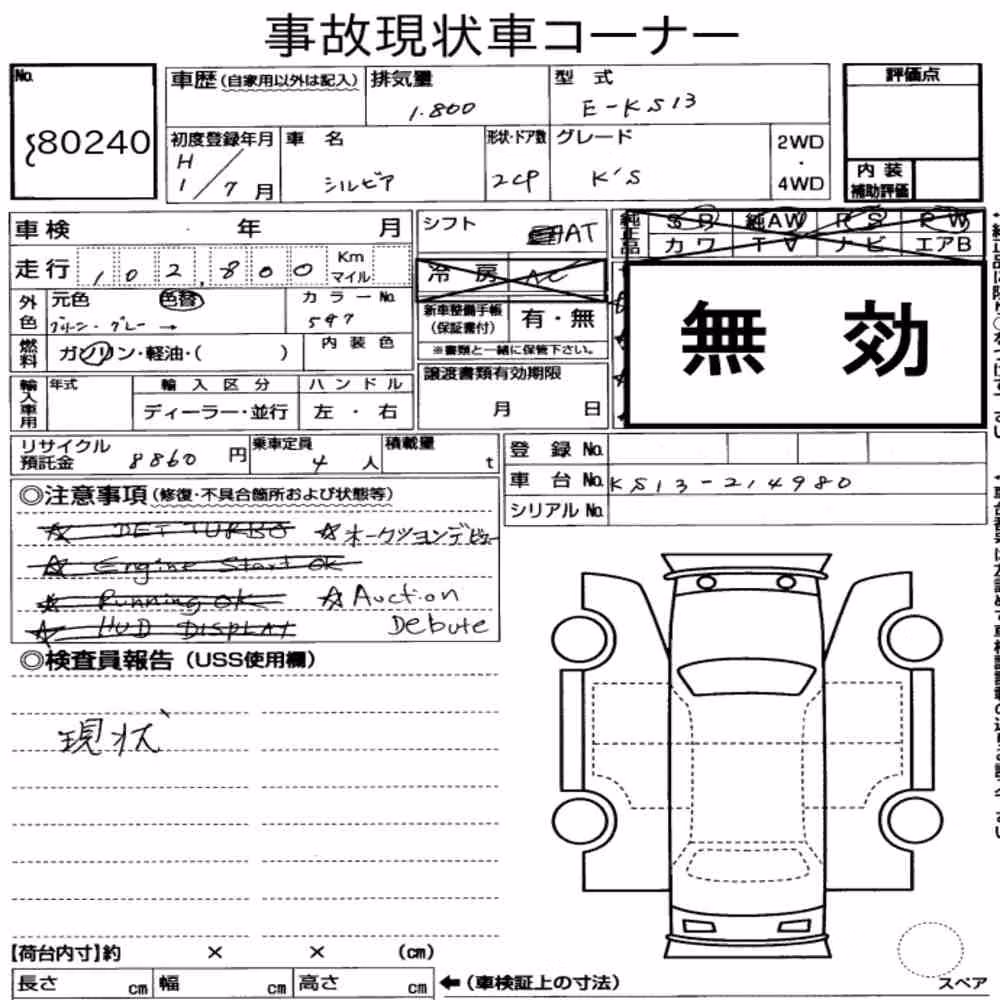 事故現状車コーナー
No. 80240
車歴(自家用以外は記入) 排気量 1.800 型式 E-KS13 評価点
初度登録年月 H1/7月 車名 シルビア 形状・ドア数 2CP グレード K'S 2WD・4WD 内装補助評価
車検 年 月 シフト AT 純正品 SR 純AW PS PW
カワ TV ナビ エアB
走行 102,800 Km マイル 冷房 AC
外色 元色 色替 カラーNo. 597
グリーン・グレー→
新車整備手帳(保証書付) 有・無
※書類と一緒に保管下さい。
無効
燃料 ガソリン・軽油・( ) 内装色
輸入車用 年式 輸入区分 ハンドル
ディーラー・並行 左・右
譲渡書類有効期限
月 日
リサイクル預託金 8860円 乗車定員 4人 積載量 t
登録No.
車台No. KS13-214980
シリアルNo.
◎注意事項(修復・不具合箇所および状態等)
☆ DET TURBO ☆オークツヨンデビュー
☆ Engine Start OK
☆ Running OK ☆Auction
☆ HUD DISPLAY Debute
◎検査員報告(USS使用欄)
現状
【荷台内寸】約 × × (cm)
長さ cm 幅 cm 高さ cm ←(車検証上の寸法)
スペア